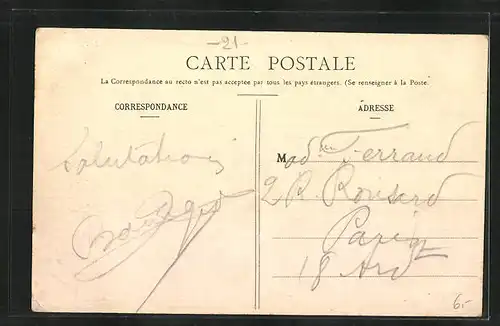 -21-
CARTE POSTALE
La Correspondance au recto n'est pas acceptée par tous les pays étrangers. (Se renseigner à la Poste.
CORRESPONDANCE
ADRESSE
Salutations
Madme Ferrand
2 R. Ronsard
Paris
18 Ard
6.-